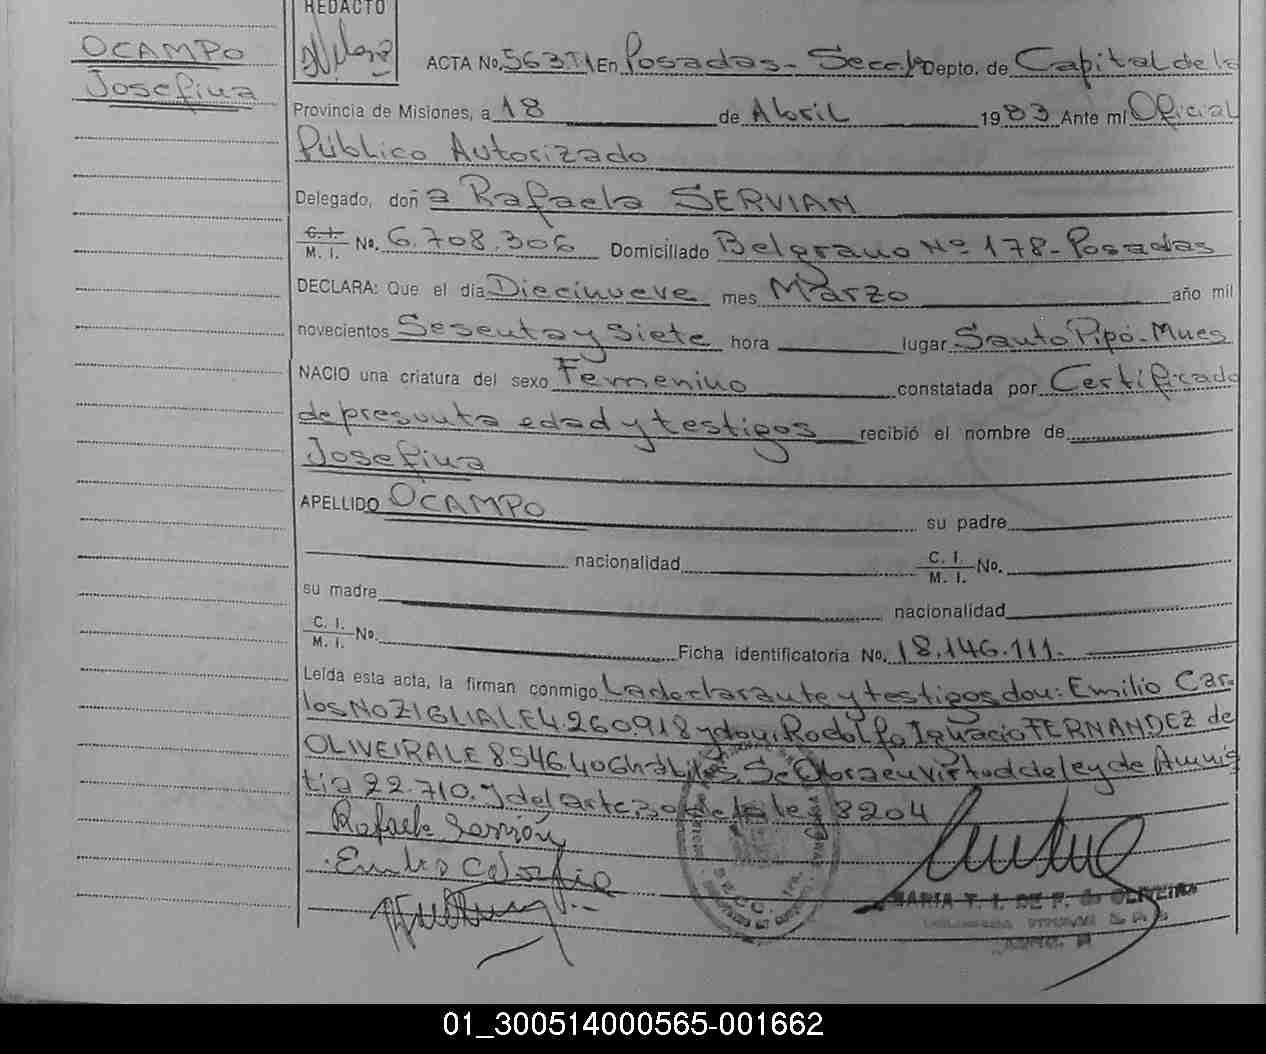 REDACTO
OCAMPO
Josefina
ACTA No. 563 TI En Posadas - Secc 1a Depto. de Capital de la
Provincia de Misiones, a 18 de Abril 1983 Ante mí Oficial
Público Autorizado
Delegado, doñ a Rafaela SERVIAN
C. I. M. I. No. 6.708.306 Domiciliado Belgrano Nº 178 - Posadas
DECLARA: Que el día Diecinueve mes Marzo año mil
novecientos Sesenta y Siete hora lugar Santo Pipó - Mnes
NACIO una criatura del sexo Femenino constatada por Certificado
de presunta edad y testigos recibió el nombre de
Josefina
APELLIDO OCAMPO su padre
nacionalidad C. I. M. I. No.
su madre nacionalidad
C. I. M. I. No. Ficha identificatoria No. 18.146.111.
Leída esta acta, la firman conmigo La declarante y testigos don: Emilio Car-
los NOZIGLIA LE 4.260.918 y don: Rodolfo Ignacio FERNANDEZ de
OLIVEIRA LE 8.546.406 hábiles. Se Obra en virtud de ley de Amnis
tia 22.710. y del art 30 de ley 8204
Rafaela Servián
MARIA T. I. DE F. de OLIVEIRA
01_300514000565-001662